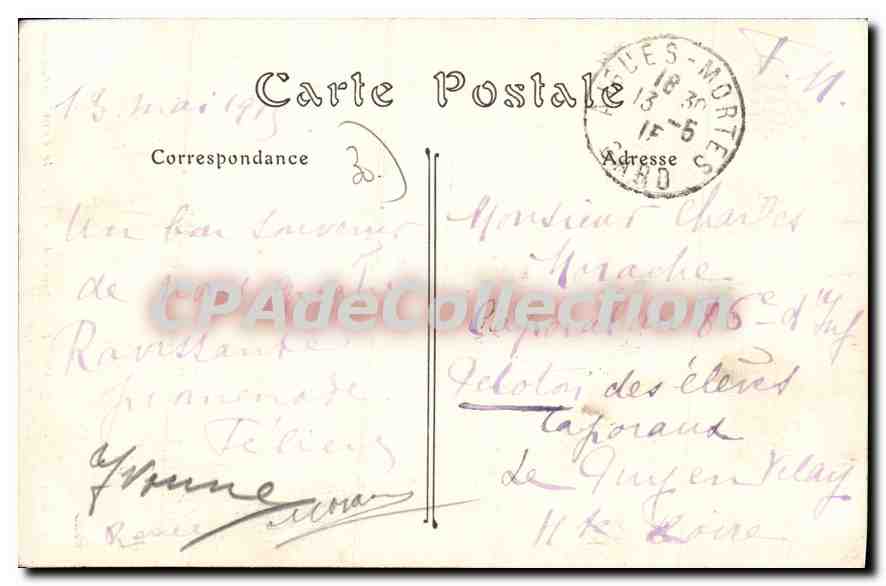 Carte Postale
AIGUES-MORTES
18 30
13 -5
15
GARD
F. M.
13 mai 1915
Correspondance
30
Adresse
Un bon souvenir
de
Ravissante
promenade
Yvonne
Monsieur Charles
Morache
Caporal au 86e d'Inf
Peloton des élèves
Caporaux
Le Puy en Velay
Hte Loire
CPAdeCollection